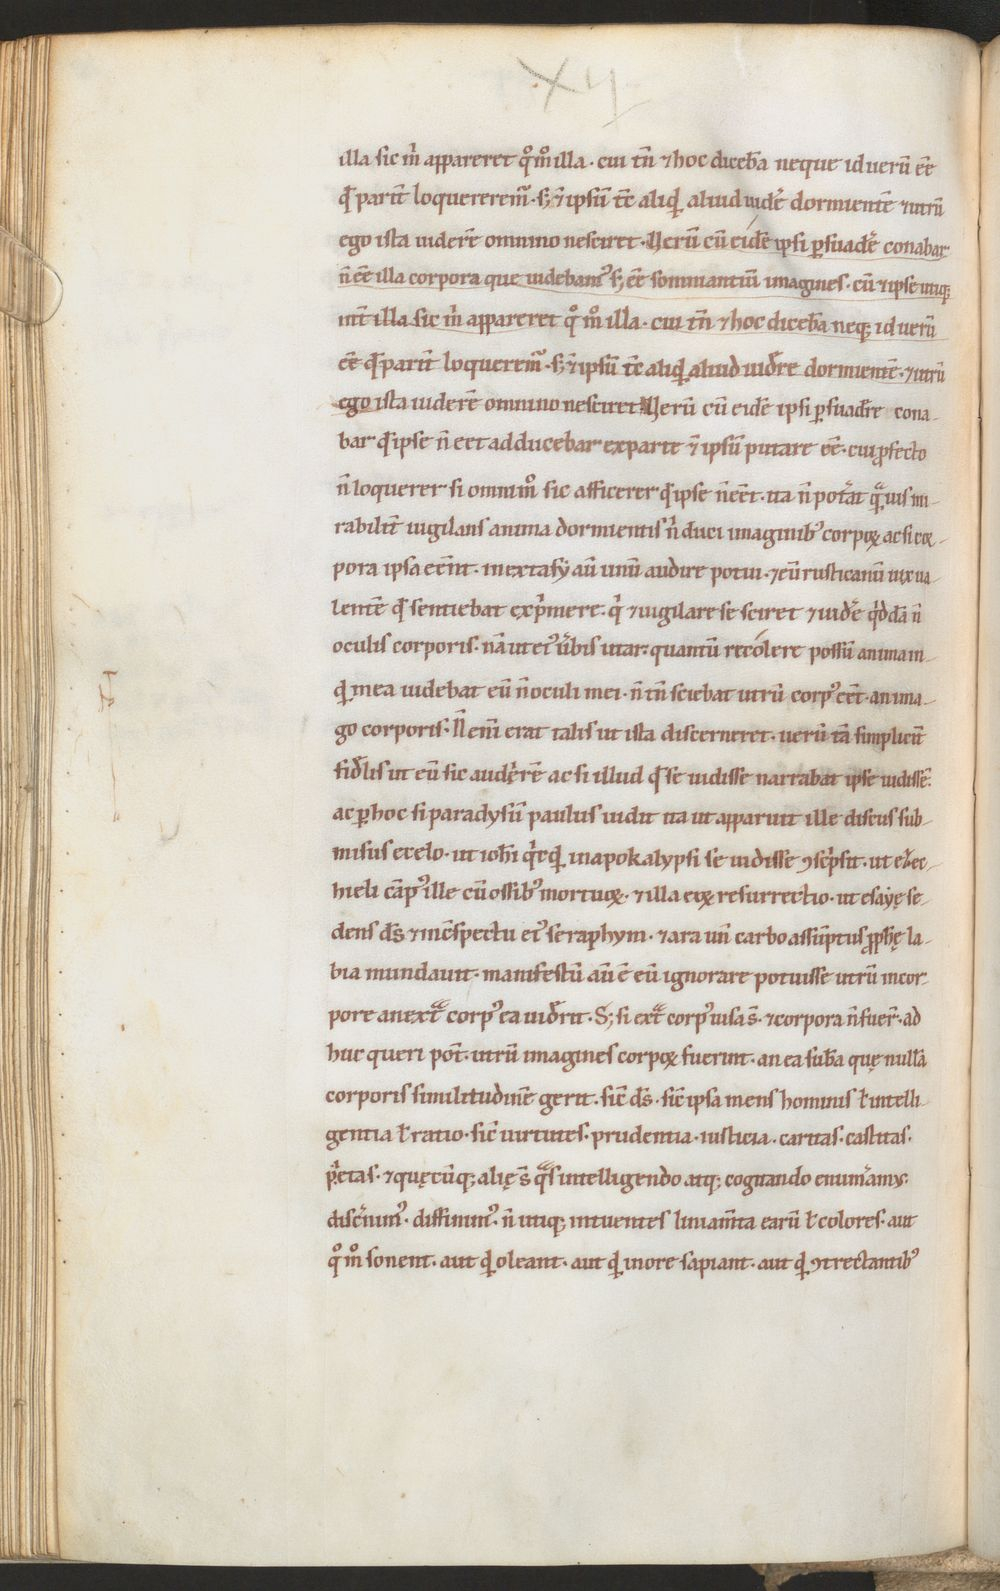 xij
illa sic m̄ appareret qͦmͦ illa · cui tn̄ ⁊ hoc diceb̄a neque id uerū eē
qđ parit̄ loquererem᷑ · s; ⁊ ipsū tē aliqͥd aliud uidē dormientē ⁊ utrū
ego ista uiderē omnino nesciret · Uerū cū eidē ipsi ꝑsuadē conabar
n̄ eē illa corpora que uidebam᷒ s; eē somniantiū imagines · cū ⁊ ipse utiq;
int̄ illa sic m̄ appareret qͦ mͦ illa · cui tn̄ ⁊ hoc diceb̄a neq; id uerū
eē qđ parit̄ loquerem᷑ · s; ⁊ ipsū tē aliqͥd aliud uid̄re dormientē · ⁊ utrū
ego ista uiderē omnino nesciret Uerū cū eidē ipsi ꝑsuad̄re cona-
bar qđ ipse n̄ eēt adducebar ex parte ⁊ ipsū putare eē · cui ꝓfecto
n̄ loquerer si omnimͦ sic afficerer qđ ipse n̄ eēt · ita n̄ pot̄at qͣuis mi-
rabilit̄ uigilans anima dormientis n̄ duci imaginib᷒ corpoꝝ ac si cor-
pora ipsa eēnt · in extasy aū unū audire potui · ⁊ eū rusticanū uix ua-
lentē qđ sentiebat exp̄mere · qͥ ⁊ uigilare se sciret ⁊ uidē qͥddā n̄
oculis corporis · nā ut ei᷒ ūbis utar · quantū recolere possū anima in-
qͥd mea uidebat eū n̄ oculi mei · n̄ tn̄ sciebat utrū corp᷒ eēt · an ima-
go corporis · N̄ enī erat talis ut ista discerneret · uerū tā simplicit̄
fid̄lis ut eū sic audirē ac si illud qđ se uidisse narrabat ipse uidissē ·
ac ꝑ hoc si paradysū paulus uidit ita ut apparuit ille discus sub-
misus e celo · ut ioh̄i qͥcqͥd in apokalypsi se uidisse ꝯsc̄psit · ut ezec-
hieli cāp᷒ ille cū ossib᷒ mortuoꝝ · ⁊ illa eoꝝ resurrectio · ut esayę se-
dens d̄s ⁊ in c̄spectu ei᷒ seraphym · ⁊ ara un̄ carbo assūptus ꝓph̄ę la-
bia mundauit · manifestū aū ē eū ignorare potuisse utrū in cor-
pore an extͣ corp᷒ ea uid̄rit · S; si extͣ corp᷒ uisa s̄ · ⁊ corpora n̄ fuer̄ · ad
huc queri pot̄ · utrū imagines corpoꝝ fuerint · an ea sub̄a quę nullā
corporis similitudinē gerit · sic̄ d̄s · sic̄ ipsa mens hominis ł intelli-
gentia ł ratio · sic̄ uirtutes · prudentia · iusticia · caritas · castitas ·
pͥetas · ⁊ quęcūq; alię s̄ qͣs intelligendo atq; cogitando enum̄amus ·
disc̄nim᷒ · diffinim᷒ · n̄ utiq; intuentes liniam̄ta earū ł colores · aut
qͦ mͦ sonent · aut qͥd oleant · aut qͥd in ore sapiant · aut qͥd ꝯtrectantib᷒